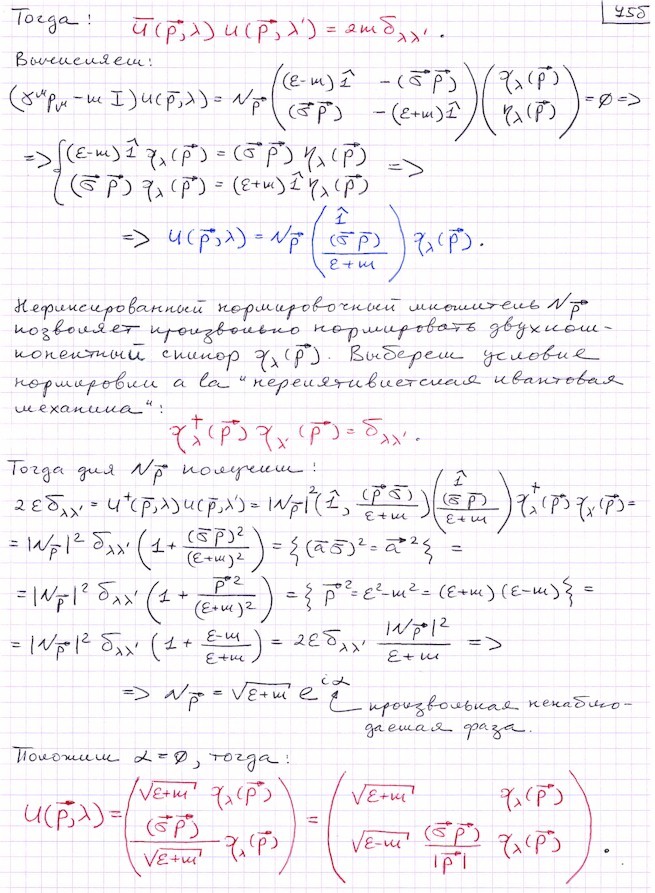 Тогда: ū(p⃗,λ) u(p⃗,λ') = 2m δ_λλ' . 75б
Вычисляем:
(γ^μ p_μ − m I) u(p⃗,λ) = N_p⃗ ( (ε−m) 1̂   −(σ⃗ p⃗) ; (σ⃗ p⃗)   −(ε+m) 1̂ ) ( χ_λ(p⃗) ; η_λ(p⃗) ) = 0 =>
=> { (ε−m) 1̂ χ_λ(p⃗) = (σ⃗ p⃗) η_λ(p⃗)
(σ⃗ p⃗) χ_λ(p⃗) = (ε+m) 1̂ η_λ(p⃗) =>
=> u(p⃗,λ) = N_p⃗ ( 1̂ ; (σ⃗ p⃗)/(ε+m) ) χ_λ(p⃗) .
Нефиксированный нормировочный множитель N_p⃗
позволяет произвольно нормировать двухком-
понентный спинор χ_λ(p⃗). Выберем условие
нормировки a la "нерелятивистская квантовая
механика":
χ_λ^†(p⃗) χ_λ'(p⃗) = δ_λλ' .
Тогда для N_p⃗ получим:
2ε δ_λλ' = u^†(p⃗,λ) u(p⃗,λ') = |N_p⃗|² (1̂, (p⃗ σ⃗)/(ε+m)) ( 1̂ ; (σ⃗ p⃗)/(ε+m) ) χ_λ^†(p⃗) χ_λ'(p⃗) =
= |N_p⃗|² δ_λλ' (1 + (σ⃗ p⃗)²/(ε+m)²) = { (a⃗ σ⃗)² = a⃗² } =
= |N_p⃗|² δ_λλ' (1 + p⃗²/(ε+m)²) = { p⃗² = ε²−m² = (ε+m)(ε−m) } =
= |N_p⃗|² δ_λλ' (1 + (ε−m)/(ε+m)) = 2ε δ_λλ' |N_p⃗|²/(ε+m) =>
=> N_p⃗ = √(ε+m) e^{iα} произвольная ненаблю-
даемая фаза.
Положим α = 0, тогда:
u(p⃗,λ) = ( √(ε+m) χ_λ(p⃗) ; (σ⃗ p⃗)/√(ε+m) χ_λ(p⃗) ) = ( √(ε+m) χ_λ(p⃗) ; √(ε−m) (σ⃗ p⃗)/|p⃗| χ_λ(p⃗) ) .